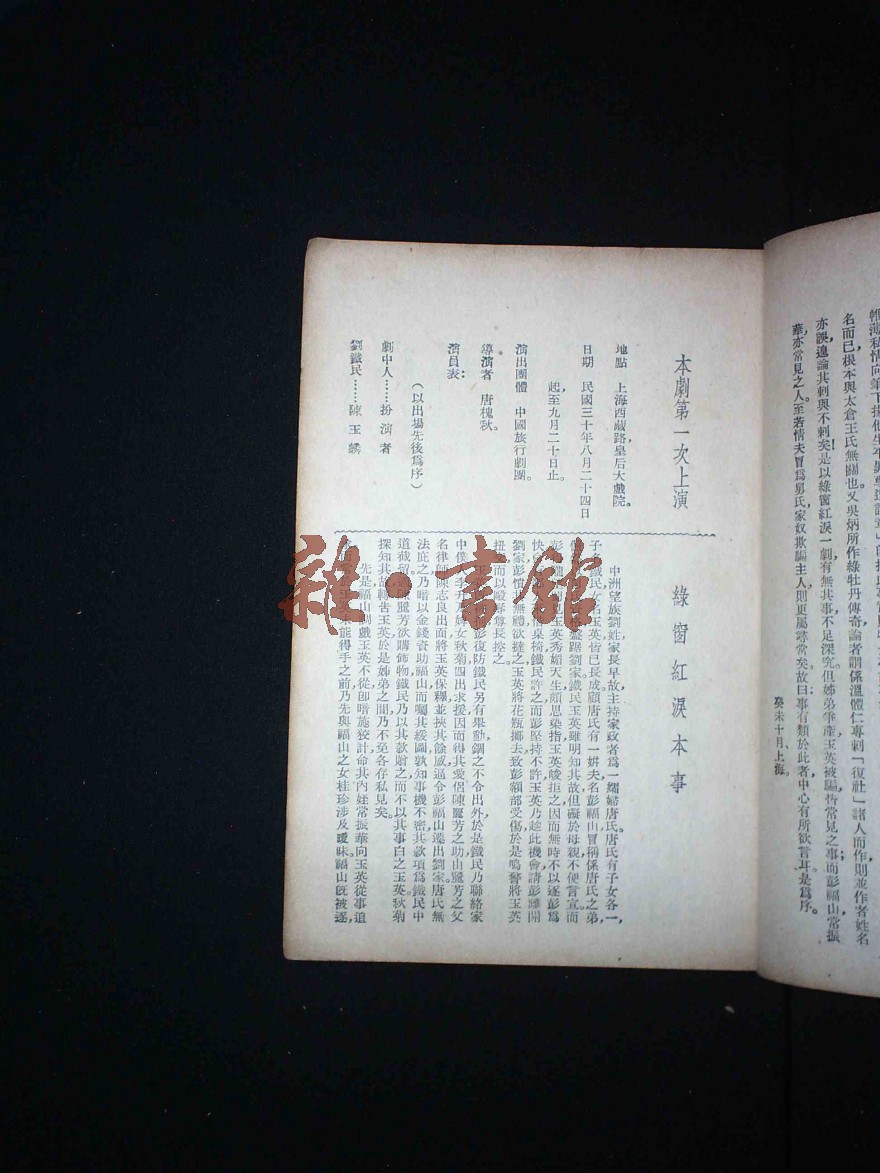 名而已根本與太倉王氏無關也又吳炳所作綠牡丹傳奇論者謂係溫體仁專刺「復社」諸人而作則並作者姓名
亦誤遑論其刺與不刺矣!是以綠窗紅淚一劇有無其事不足深究但姊弟爭產玉英被騙皆常見之事;而彭福山常振
華,亦常見之人至若情夫冒爲舅氏家奴欺騙主人則更屬尋常矣故曰事有類於此者中心有所欲言耳是爲序。
癸未十月,上海。
本劇第一次上演
地點 上海西藏路皇后大戲院。
日期 民國三十年八月二十四日
起至九月二十日止。
演出團體 中國旅行劇團。
導演者 唐槐秋。
演員表:
(以出場先後爲序)
劇中人……扮演者
劉鐵民……陳玉麟
綠窗紅淚本事
中洲望族劉姓家長早故主持家政者爲一孀婦唐氏唐氏育子女各一,
子 民女 玉英皆已長成顧唐氏有一姘夫名彭福山冒稱係唐氏之弟,
盤踞劉家鐵民玉英雖明知其故但礙於母親不便言宣而
彭 玉英秀媚天生頗思染指玉英峻拒之因而無時不以逐彭爲
快 桌椅鐵民許之而彭堅持不許玉英乃趁此機會請彭離開
劉家彭憤其無禮欲撻之玉英將花瓶擲去致彭額部受傷於是鳴警將玉英
扭 而以毆辱尊長控之
玉 彭復防鐵民另有舉動錮之不令出外於是鐵民乃聯絡家
中僕 李升乃姊女秋菊四出求援因而得其愛侶陳麗芳之助由麗芳之父
名律師陳志良出面將玉英保釋並挾其餘威逼令彭福山遷出劉家唐氏無
法庇之乃暗以金錢資助福山而囑其緩圖孰知事機不密其款項爲鐵民中
道截留 陳麗芳欲購飾物鐵民乃以其款贈之而不以其事白之玉英秋菊
探知其故轉告玉英於是姊弟之間乃不免各存私見矣。
先是福山調戲玉英不從卽暗施狡計命其內姪常振華向玉英從事追
能得手之前乃先與福山之女桂珍涉及曖昧福山旣被逐,
雜·書館